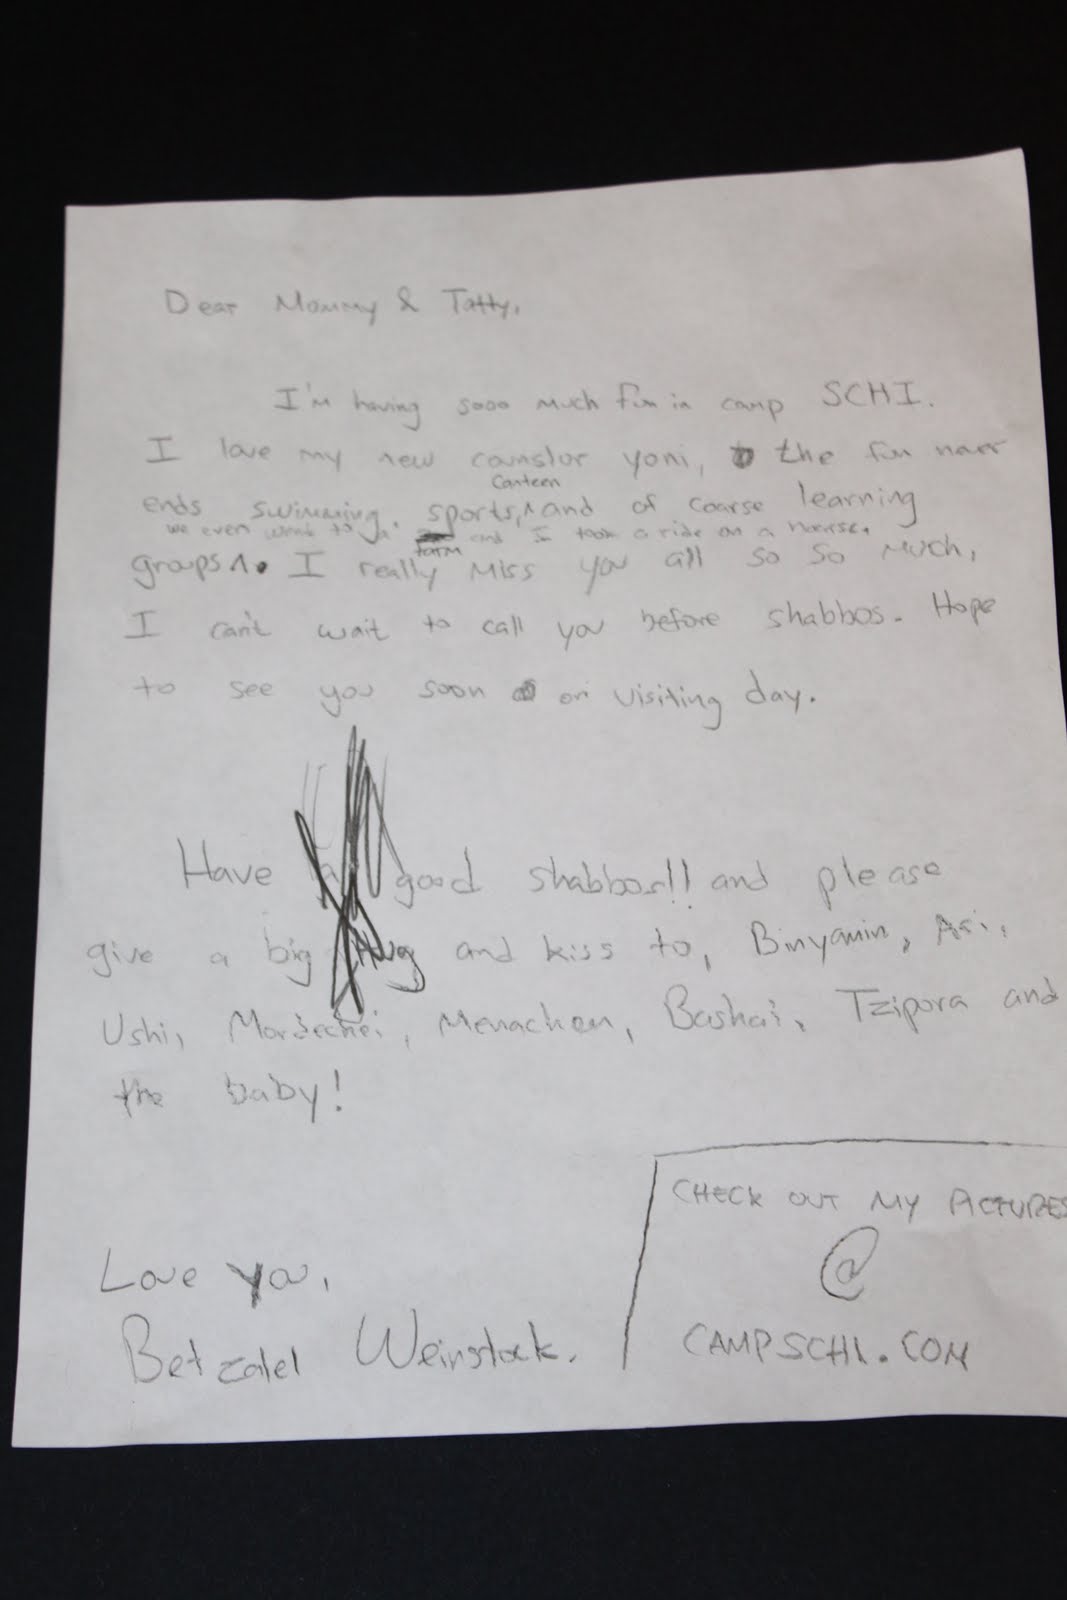 Dear Mommy & Tatty,
I'm having sooo much fun in camp SCHI.
I love my new counslor yoni, the fun never
Canteen
ends swimming, sports, ^ and of coarse learning
we even went to a farm and I took a ride on a horse.
groups ^. I really miss you all so so much,
I can't wait to call you before shabbos. Hope
to see you soon on visiting day.
Have good shabbos!! and please
give a big Hug and kiss to, Binyamin, Ari,
Ushi, Mordechei, Menachem, Bashai, Tzipora and
the baby!
CHECK OUT MY PICTURES
@
CAMPSCHI.COM
Love you,
Betzalel Weinstock.